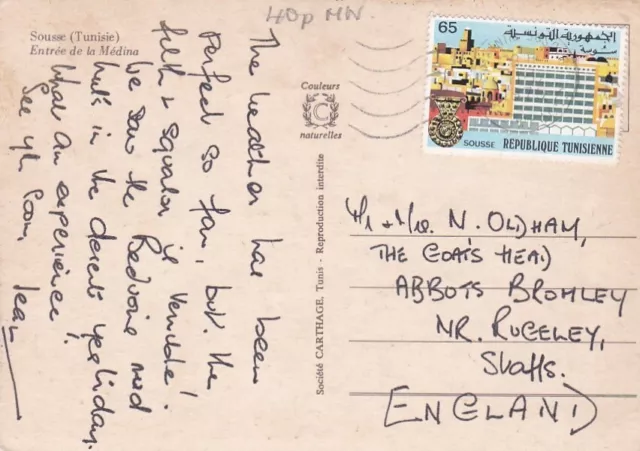 40p MN.
Sousse (Tunisie)
Entrée de la Médina
Couleurs
C
naturelles
Société CARTHAGE, Tunis - Reproduction interdite
65
الجمهورية التونسية
سوسة
SOUSSE REPUBLIQUE TUNISIENNE
The weather has been
perfect so far, but the
filth & squalor is terrible!
We saw the Bedouine mud
huts in the desert yesterday.
What an experience!
See you soon,
Jean
Mr & Mrs. N. OLDHAM,
THE GOATS HEAD
ABBOTS BROMLEY
NR. RUGELEY,
Staffs.
[ENGLAND]